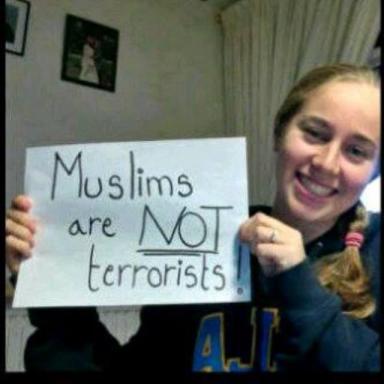 Muslims
are NOT
terrorists!